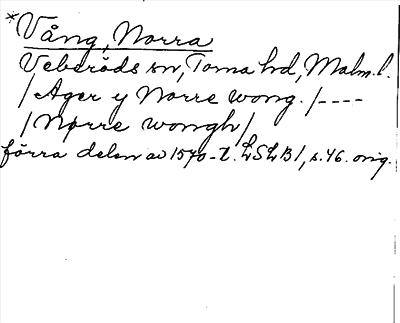 *Vång, Norra
Veberöds sn, Torna hd, Malm. l.
/Ager y Norre wong./----
/Nørre wongh/
förra delen av 1570-t. LSLB1, s.46. orig.